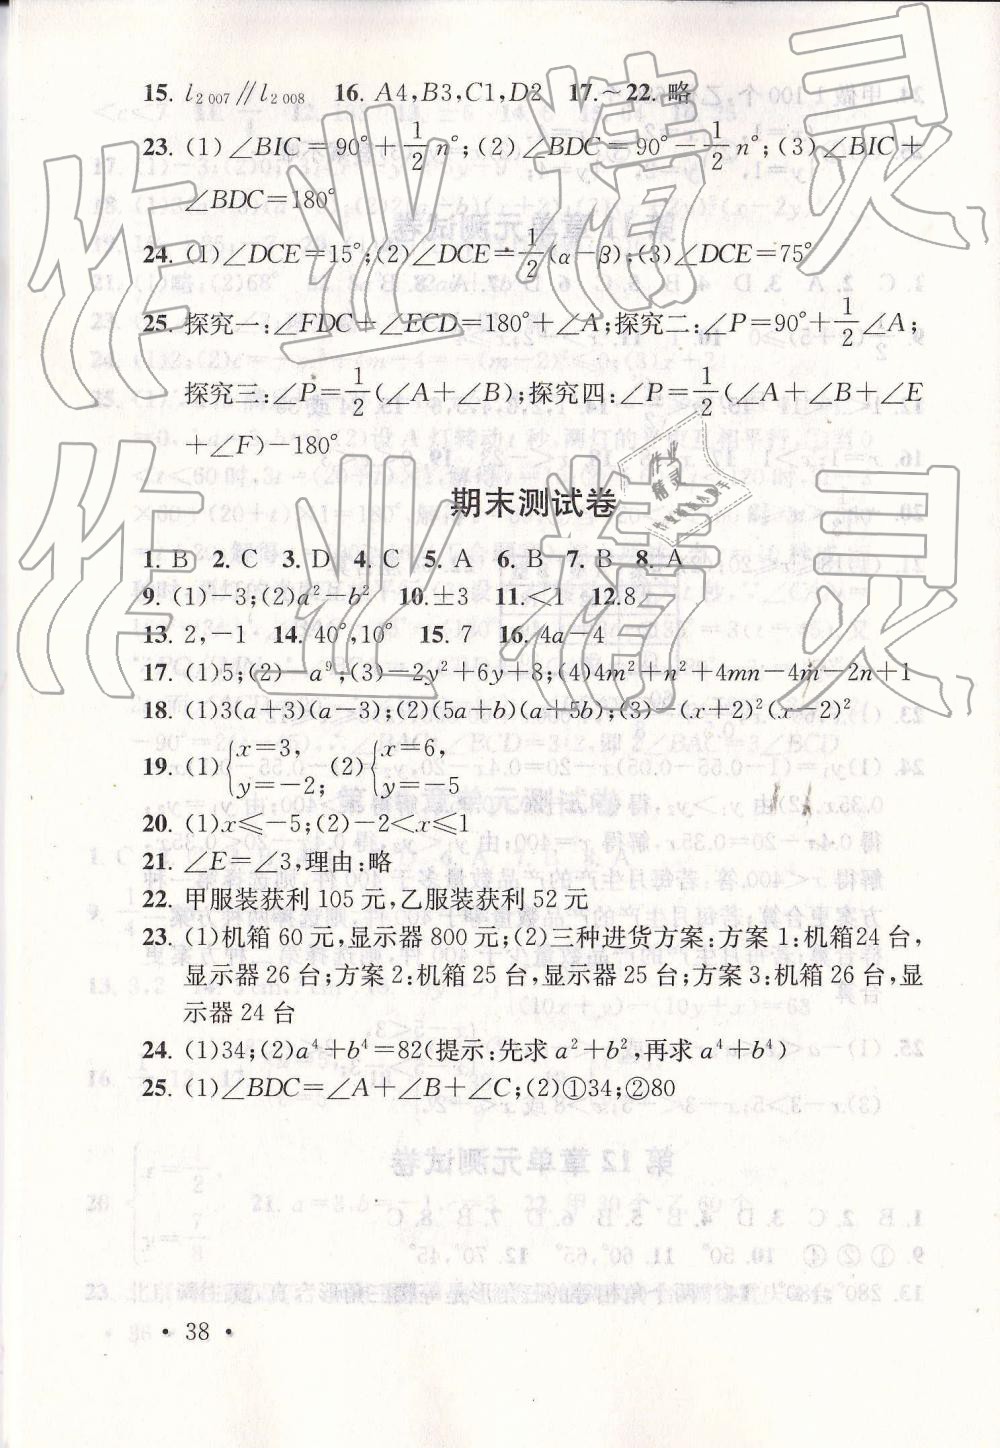 15. l₂₀₀₇∥l₂₀₀₈ 16. A4,B3,C1,D2 17.~22. 略
23. (1)∠BIC=90°+1/2 n°;(2)∠BDC=90°-1/2 n°;(3)∠BIC+
∠BDC=180°
24. (1)∠DCE=15°;(2)∠DCE=1/2(α-β);(3)∠DCE=75°
25. 探究一:∠FDC+∠ECD=180°+∠A;探究二:∠P=90°+1/2∠A;
探究三:∠P=1/2(∠A+∠B);探究四:∠P=1/2(∠A+∠B+∠E
+∠F)-180°
期末测试卷
1. B 2. C 3. D 4. C 5. A 6. B 7. B 8. A
9. (1)-3;(2)a²-b² 10.±3 11.<1 12.8
13. 2,-1 14. 40°,10° 15. 7 16. 4a-4
17. (1)5;(2)-a⁹;(3)-2y²+6y+8;(4)4m²+n²+4mn-4m-2n+1
18. (1)3(a+3)(a-3);(2)(5a+b)(a+5b);(3)-(x+2)²(x-2)²
19. (1){x=3, y=-2; (2){x=6, y=-5
20. (1)x≤-5;(2)-2<x≤1
21. ∠E=∠3,理由:略
22. 甲服装获利105元,乙服装获利52元
23. (1)机箱60元,显示器800元;(2)三种进货方案:方案1:机箱24台,
显示器26台;方案2:机箱25台,显示器25台;方案3:机箱26台,显
示器24台
24. (1)34;(2)a⁴+b⁴=82(提示:先求a²+b²,再求a⁴+b⁴)
25. (1)∠BDC=∠A+∠B+∠C;(2)①34;②80
• 38 •
作业精灵
作业精灵
作业
精灵